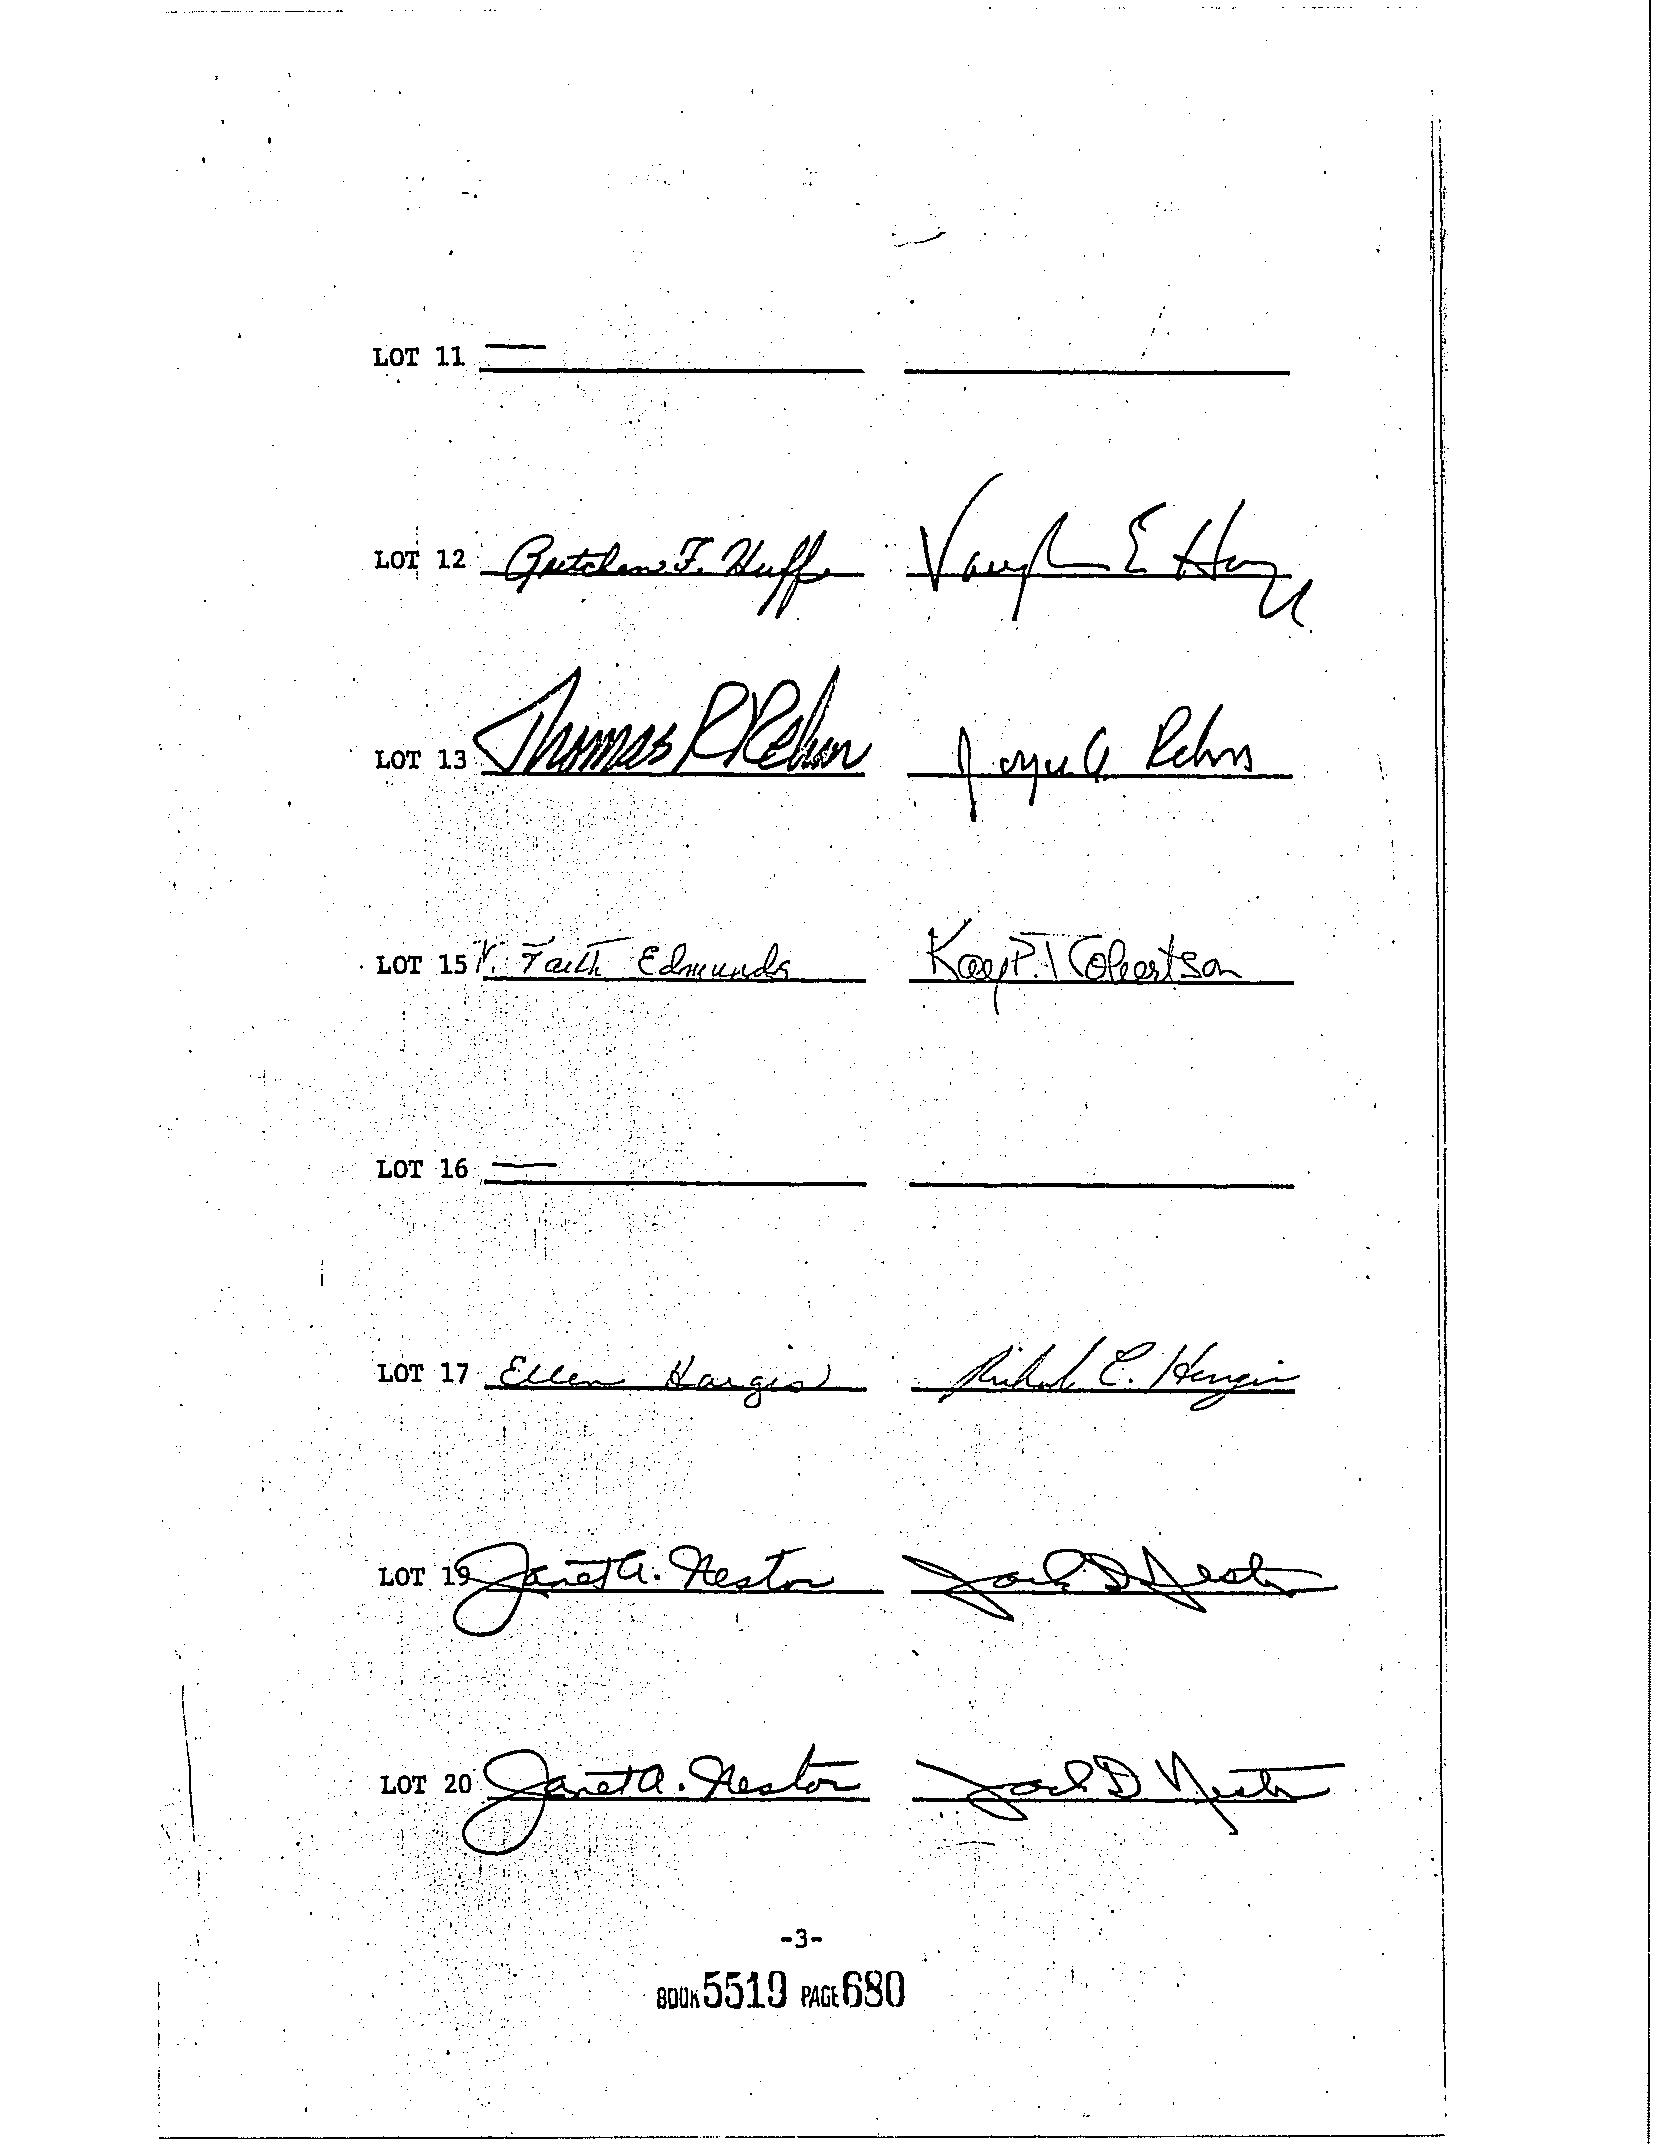 LOT 11 —
LOT 12 Gretchen F. Huff Vaughn E
LOT 13 Thomas R Rehm Joyce A. Rehm
LOT 15 V. Faith Edmunds Kay P. Robertson
LOT 16 —
LOT 17 Ellen Hargis Richard E. Hargis
LOT 19 Janet A. Nestor Jack D Nestor
LOT 20 Janet A. Nestor Jack D Nestor
-3-
BOOK 5519 PAGE 680